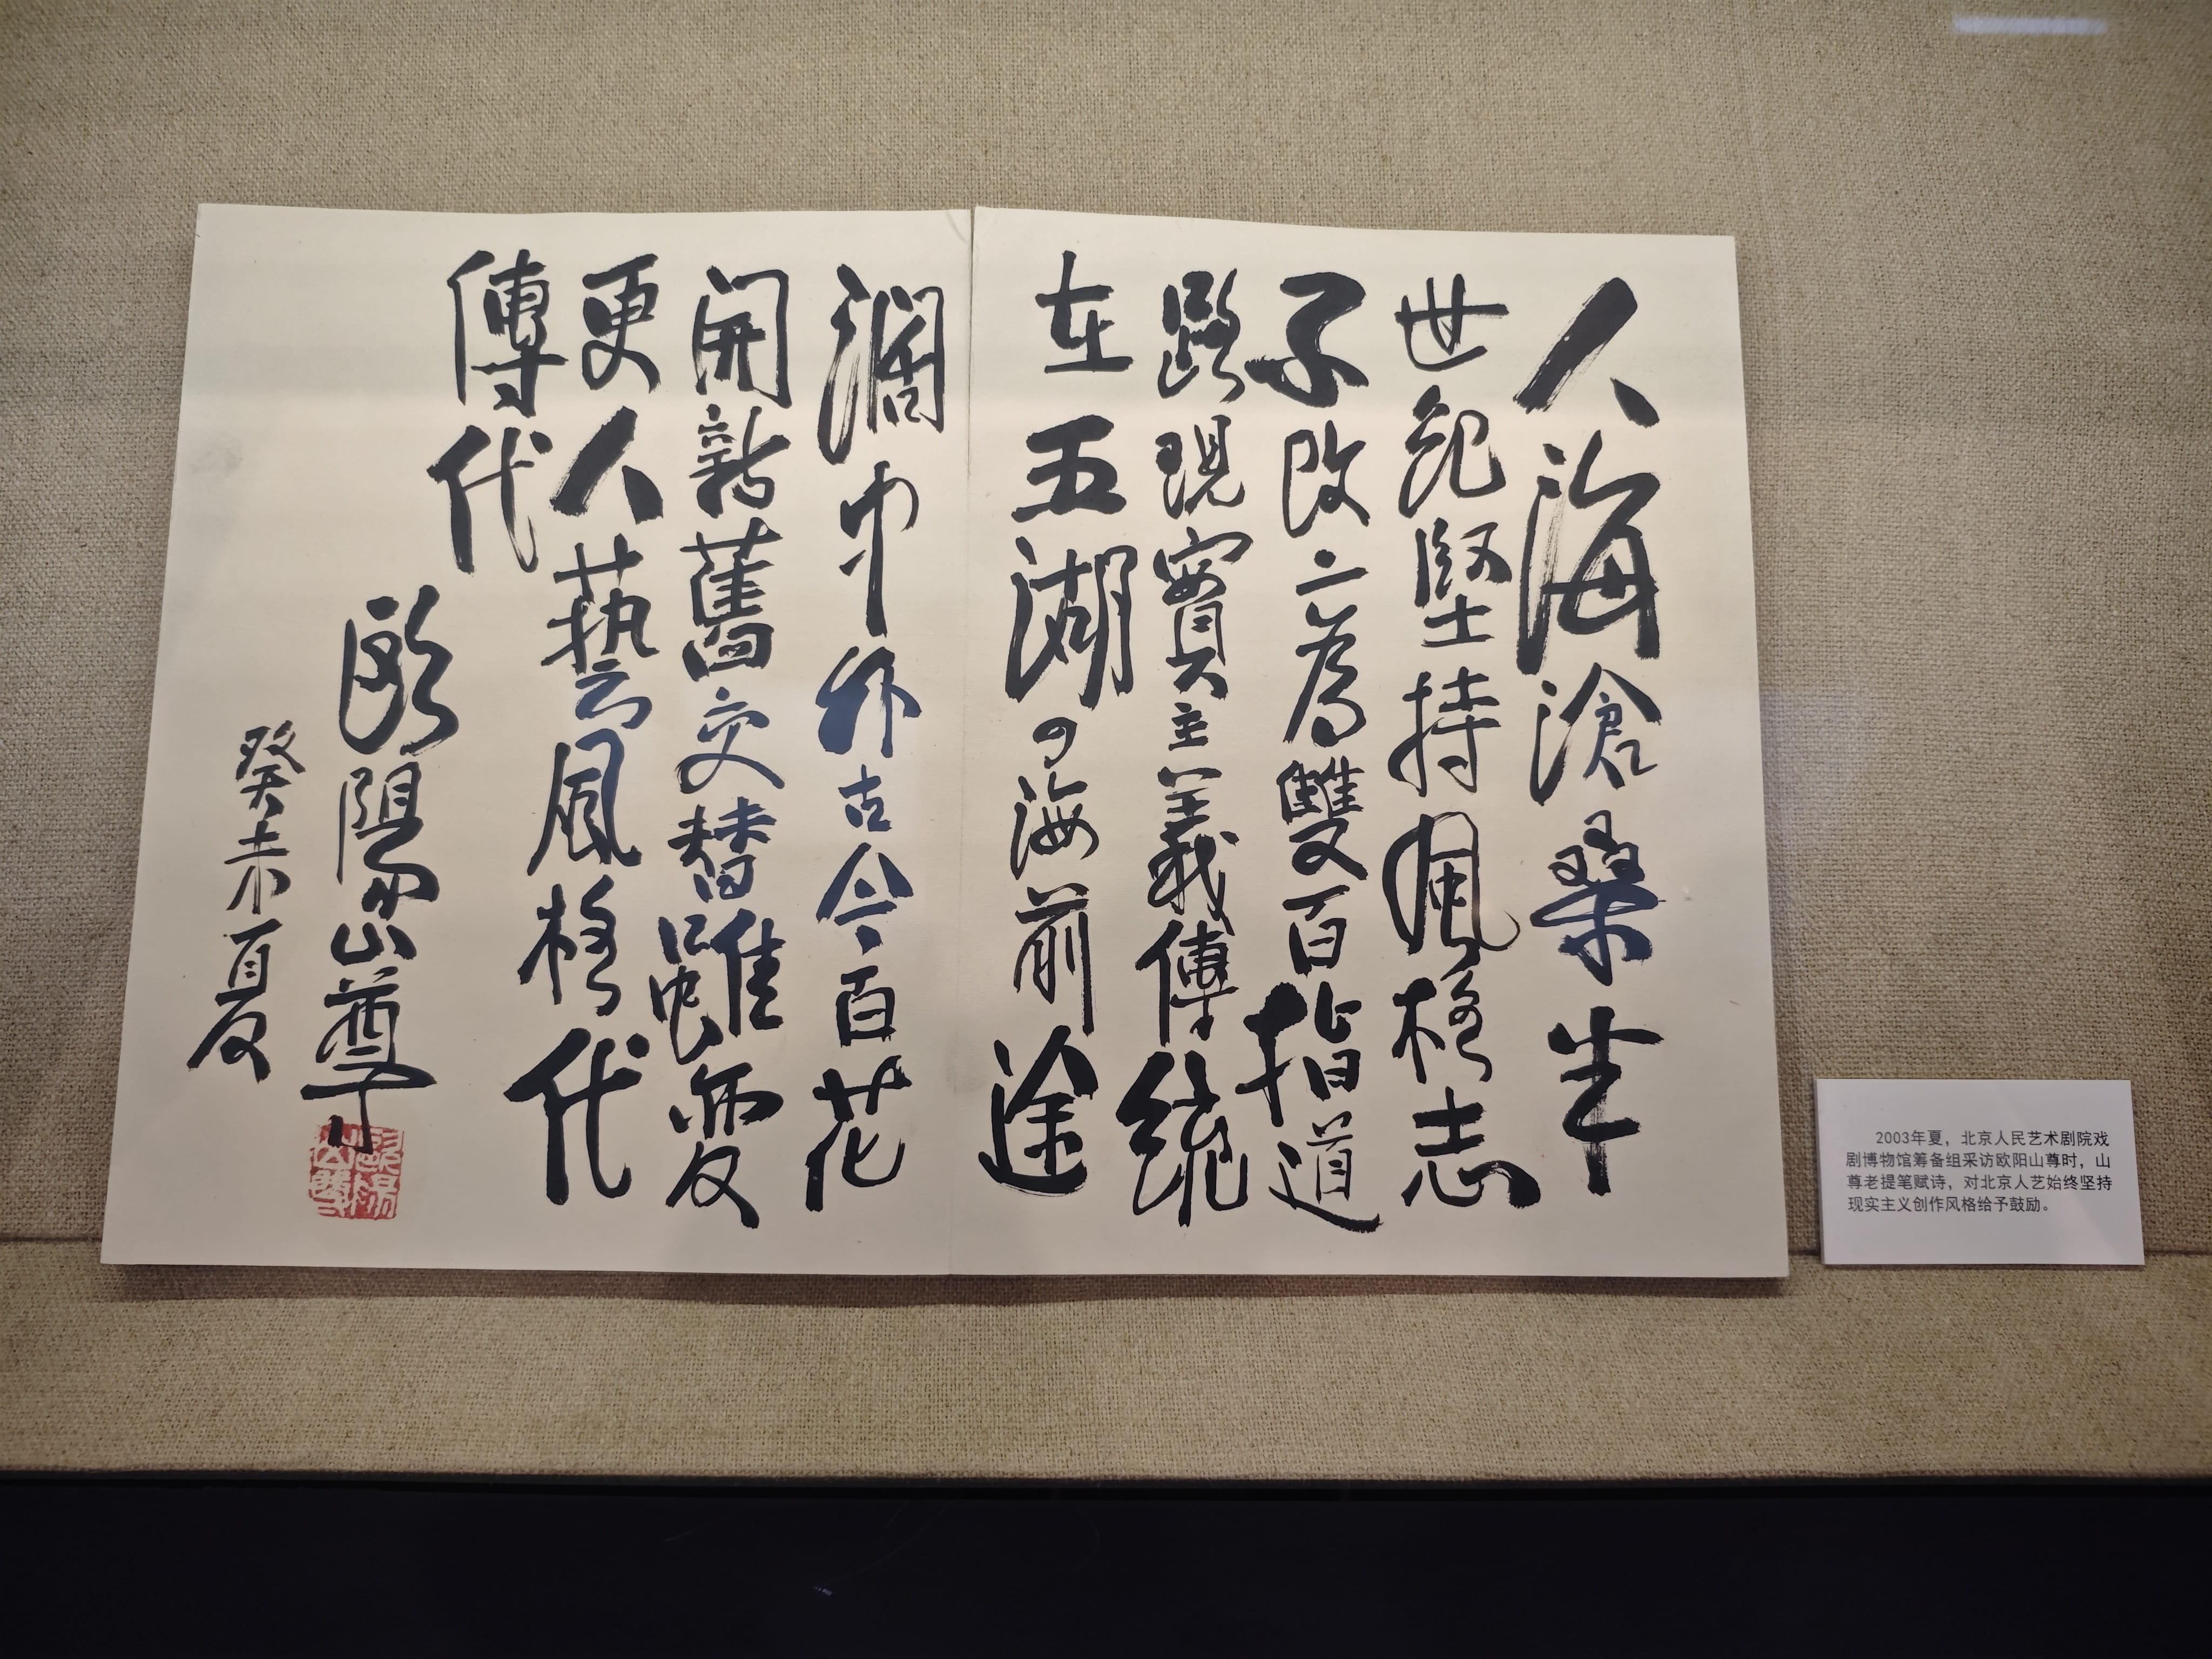 人海滄桑半
世紀堅持風格志
不改二為雙百指道
路現實主義傳統
在五湖四海前途
濶中外古今百花
開新舊交替雖變
更人藝風格代
傳代
歐陽山尊
癸未夏
歐陽山尊
2003年夏，北京人民艺术剧院戏
剧博物馆筹备组采访欧阳山尊时，山
尊老提笔赋诗，对北京人艺始终坚持
现实主义创作风格给予鼓励。